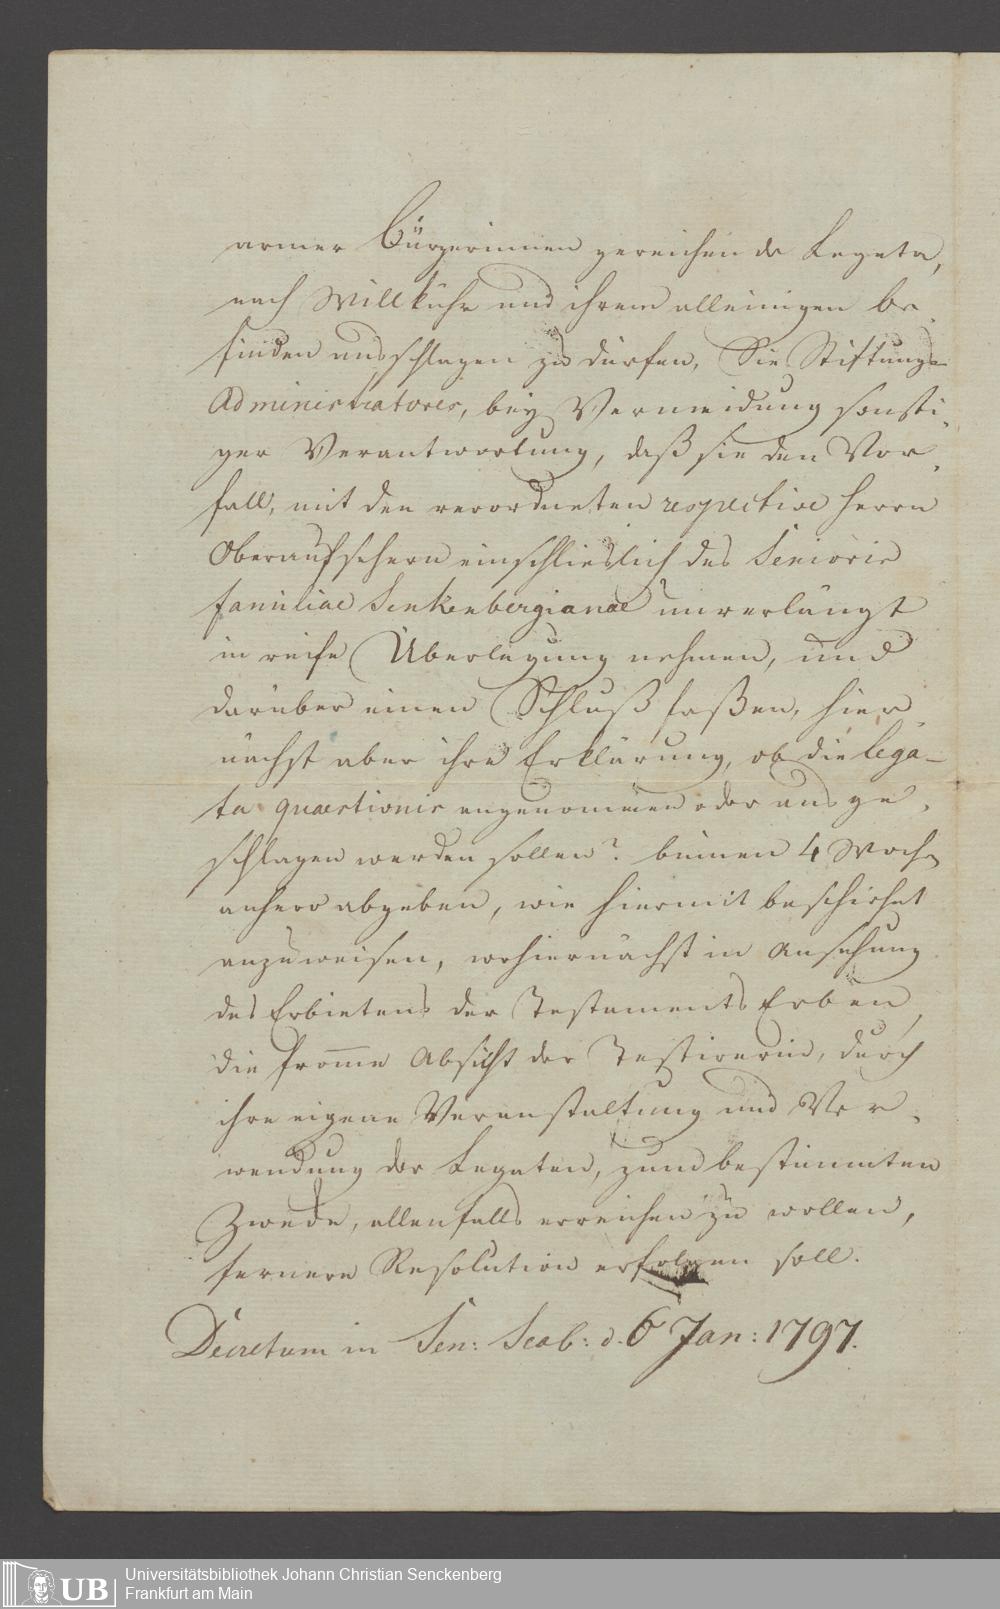 armer Bürgerinnen gereichende Legata,
nach Willkühr und ihrem alleinigen be-
finden ausschlagen zu dürfen, Sie Stiftungs
Administratores, bey Vermeidung sonsti-
ger Verantwortung, daß sie den Vor-
fall, mit den verordneten respective Herrn
Oberaufsehern einschlieslich des Senioris
familiae Senkenbergianae unverlängt
in reife Überlegung nehmen, und
darüber einen Schluß faßen, hier-
nächst aber ihre Erklärung, ob die lega-
ta quaestionis angenommen oder ausge-
schlagen werden sollen? binnen 4 Wochen
anhero abgeben, wie hiermit beschiehet
anzuweisen, wohiernächst in Ansehung
des Erbietens der Testaments Erben,
die fromme Absicht der Testirerin, durch
ihre eigene Veranstaltung und Ver-
wendung der Legaten, zum bestimmten
Zwecke, allenfalls erreichen zu wollen,
fernere Resolution erfolgen soll.
Decretum in Sen: Scab: d. 6 Jan: 1797.
UB
Universitätsbibliothek Johann Christian Senckenberg
Frankfurt am Main